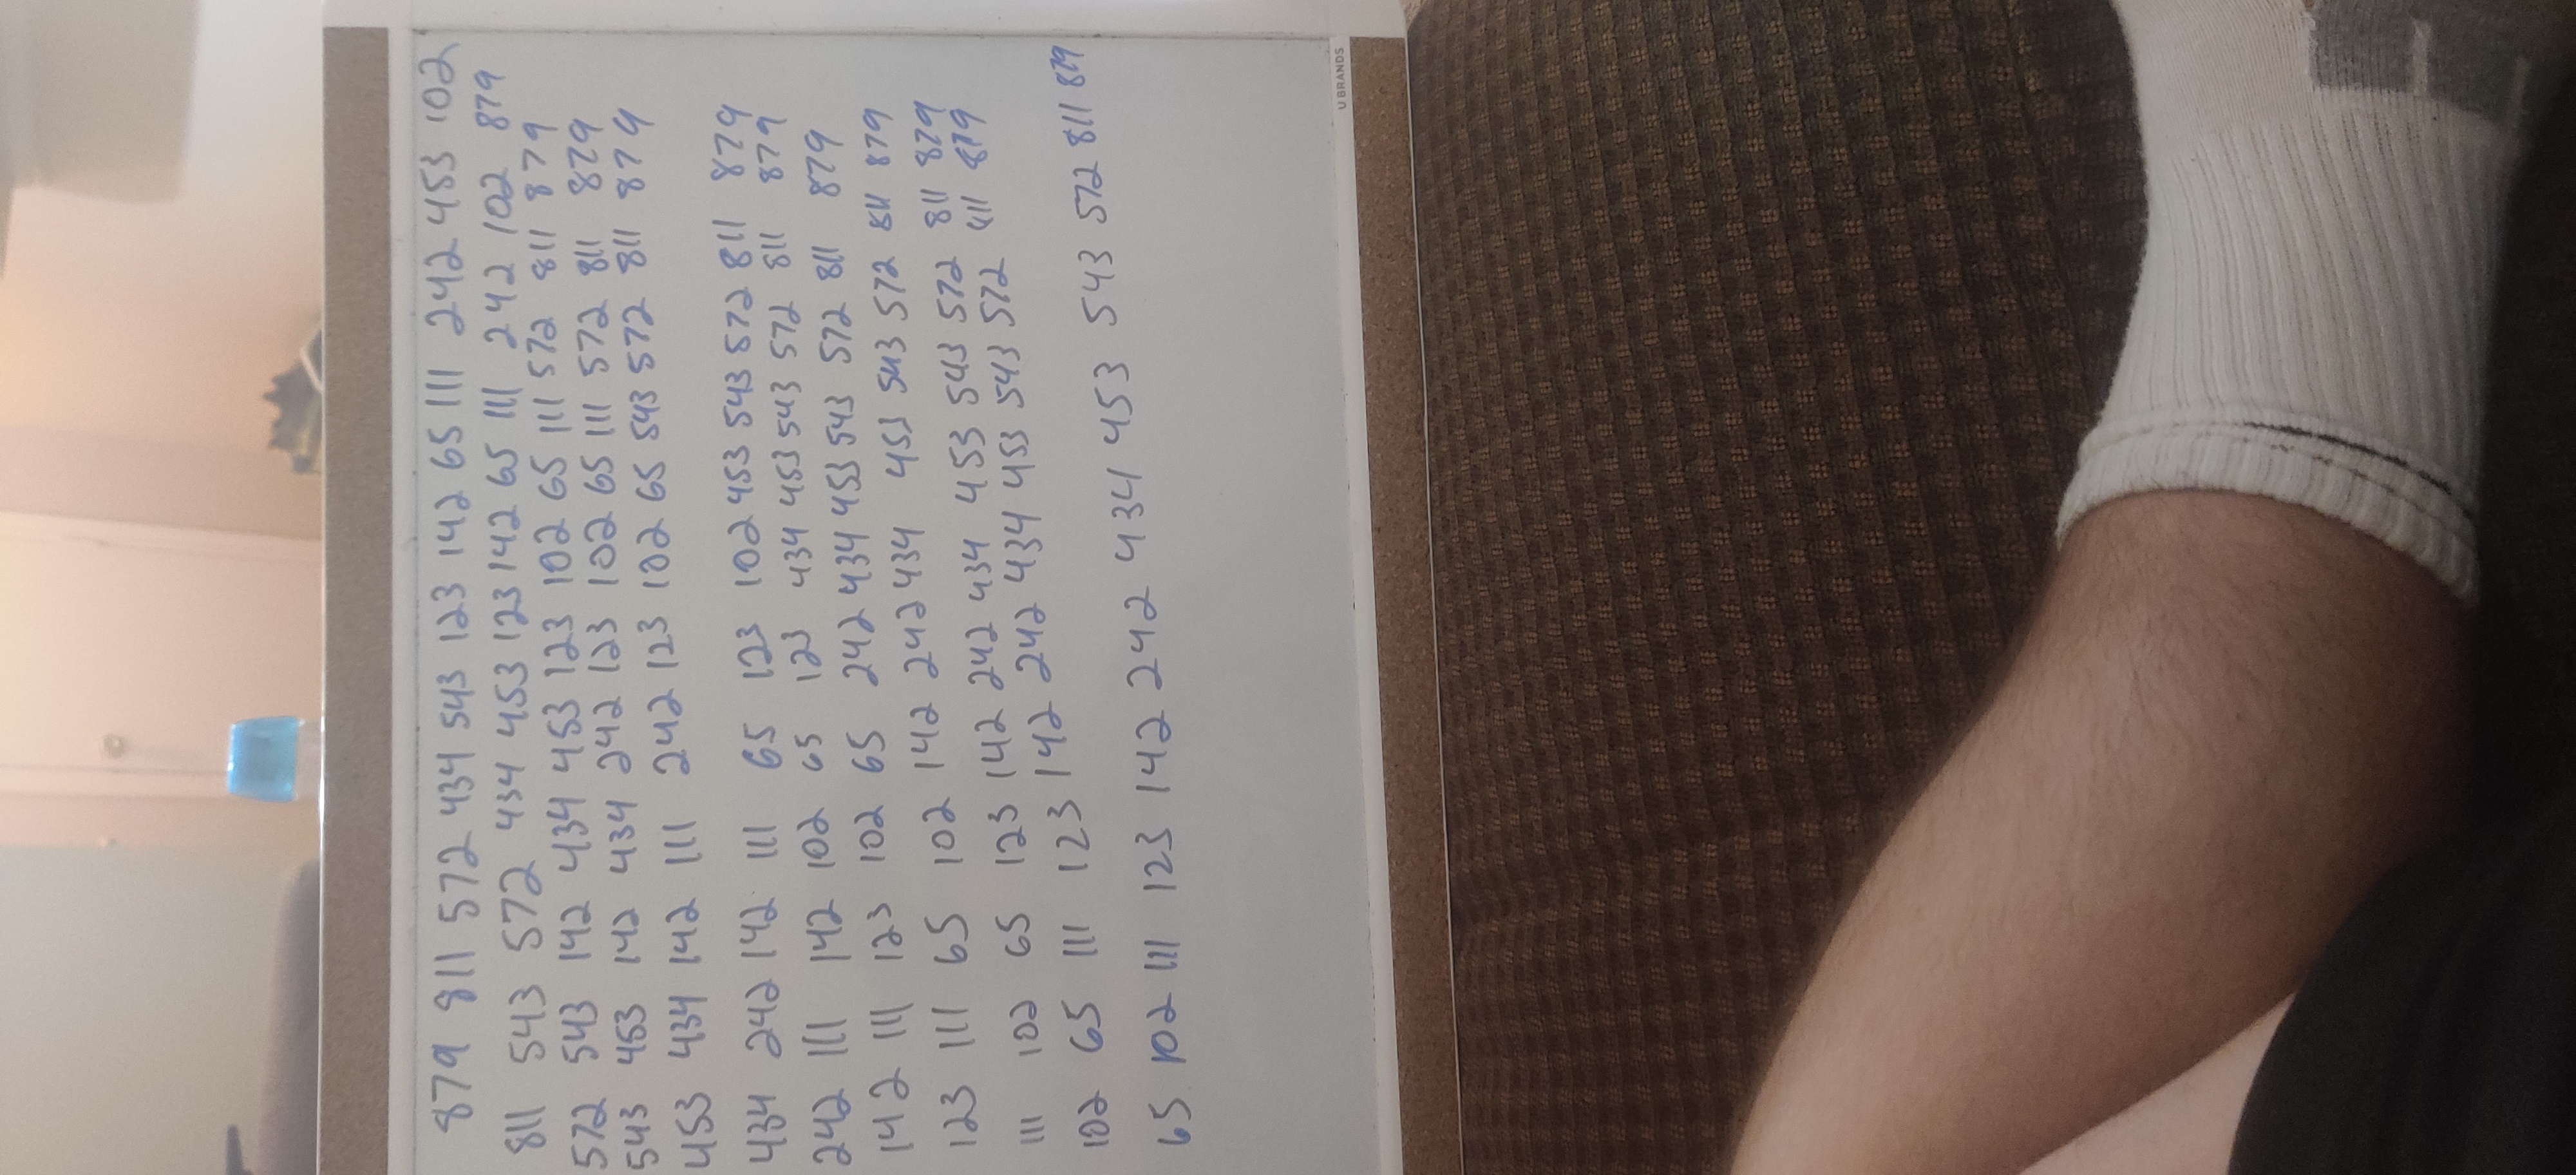 879 811 572 434 543 123 142 65 111 242 453 102
811 543 572 434 453 123 142 65 111 242 102 879
572 543 142 434 453 123 102 65 111 572 811 879
543 453 142 434 242 123 102 65 111 572 811 879
453 434 142 111 242 123 102 65 543 572 811 879
434 242 142 111 65 123 102 453 543 572 811 879
242 111 142 102 65 123 434 453 543 572 811 879
142 111 123 102 65 242 434 453 543 572 811 879
123 111 65 102 142 242 434 453 543 572 811 879
111 102 65 123 142 242 434 453 543 572 811 879
102 65 111 123 142 242 434 453 543 572 811 879
65 102 111 123 142 242 434 453 543 572 811 879
U BRANDS